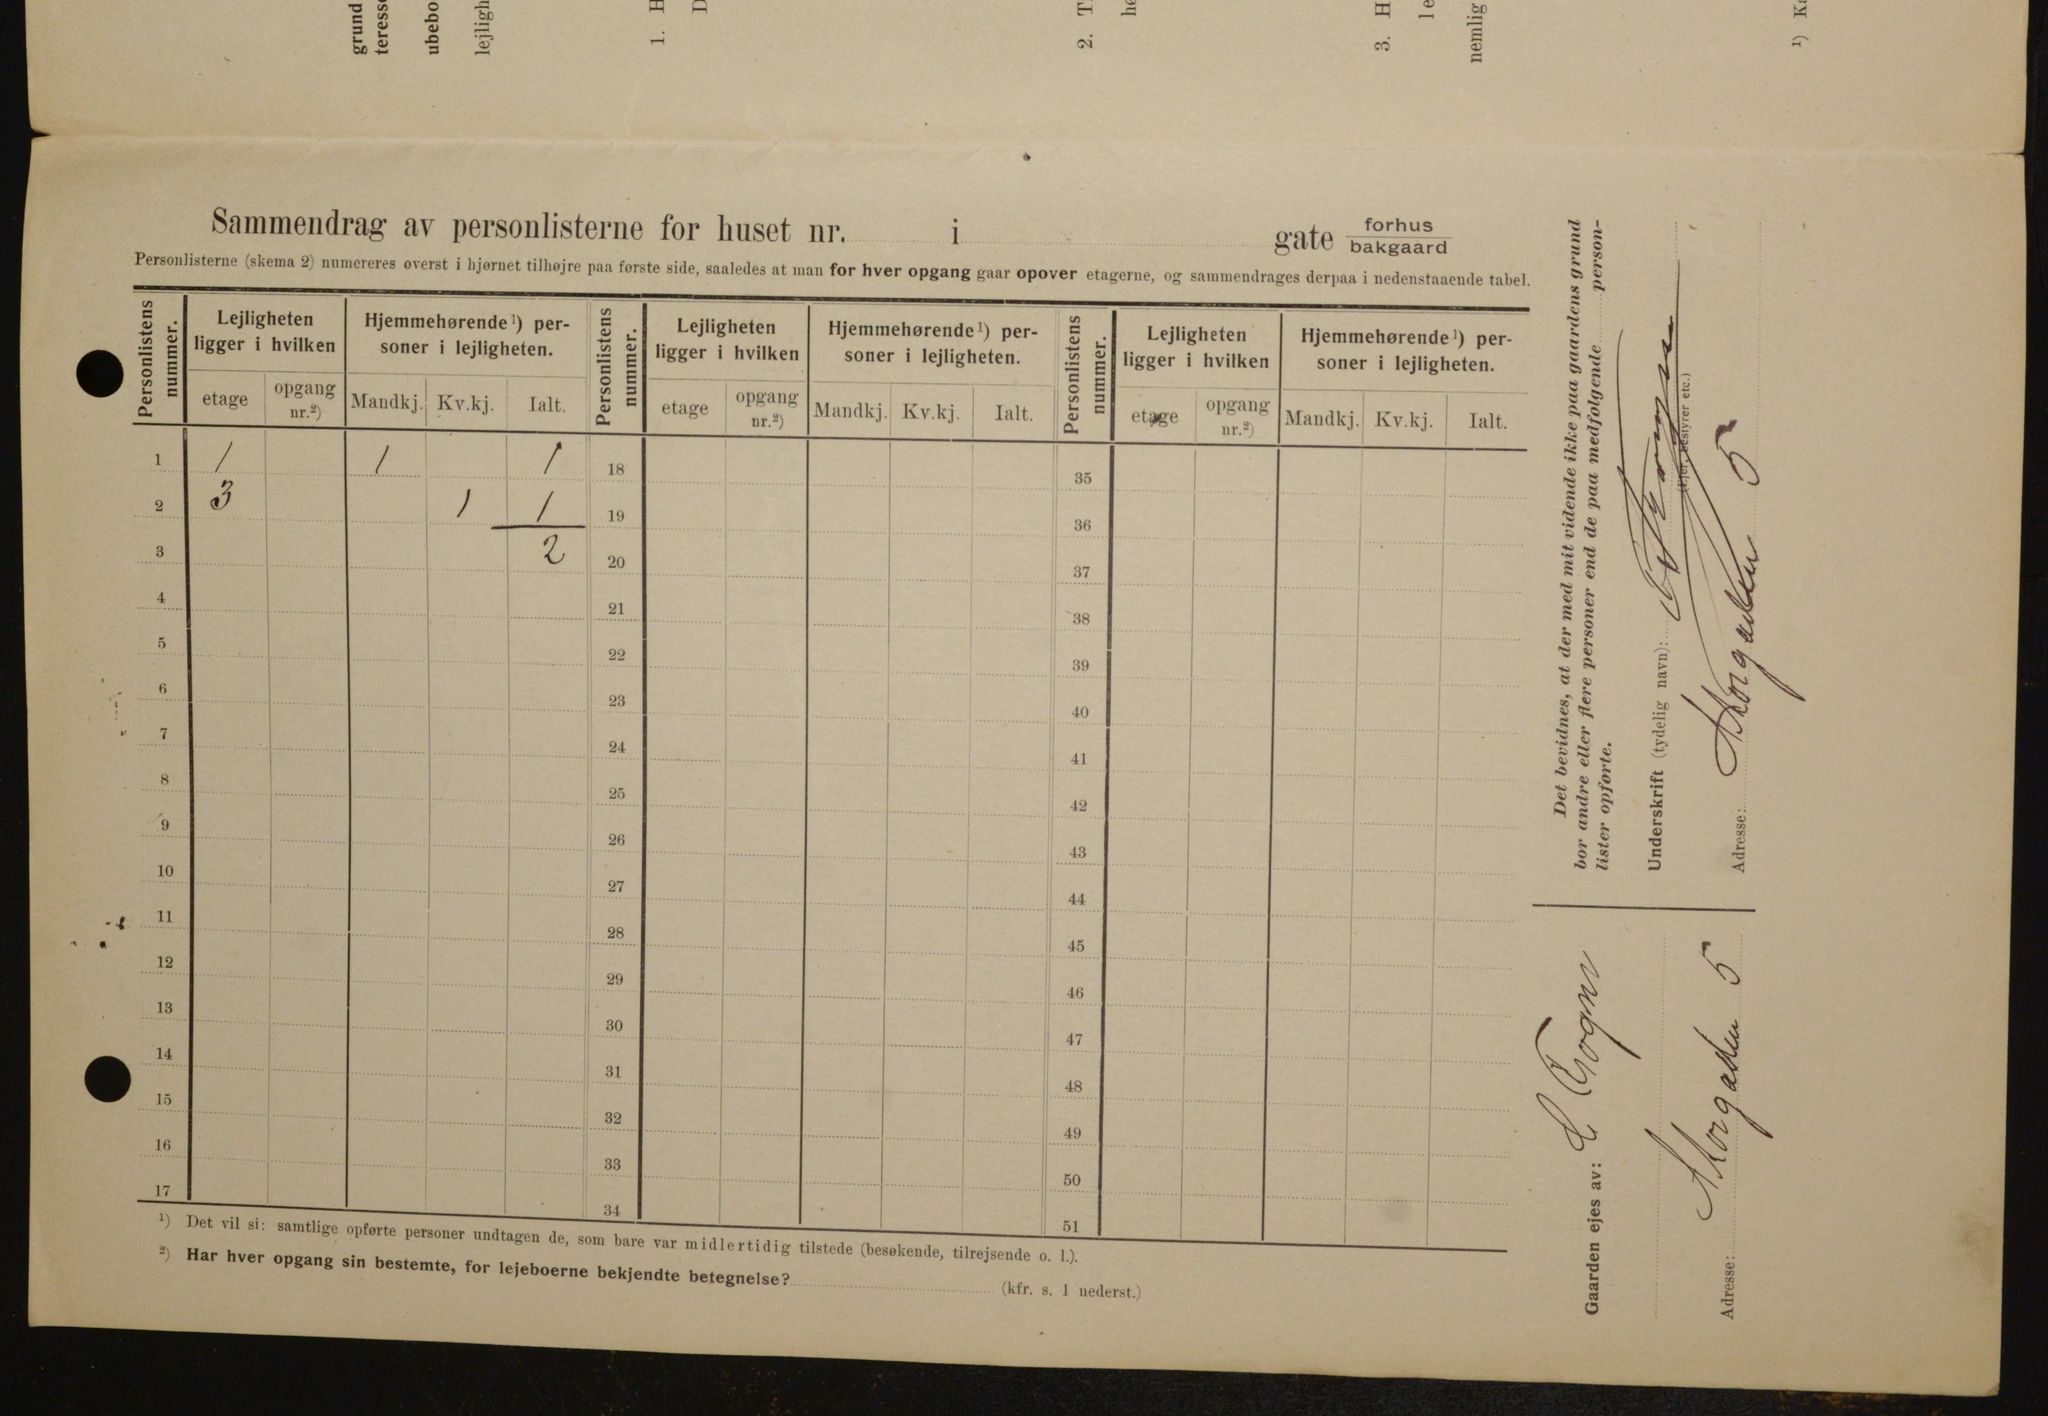 grund
teresse
ubebo
lejligh
1. H
D
2. T
he
3. H
le
nemlig
¹) Ka
Sammendrag av personlisterne for huset nr. i gate forhus
bakgaard
Personlisterne (skema 2) numereres øverst i hjørnet tilhøjre paa første side, saaledes at man for hver opgang gaar opover etagerne, og sammendrages derpaa i nedenstaaende tabel.
Personlistens nummer. Lejligheten ligger i hvilken Hjemmehørende¹) personer i lejligheten. Personlistens nummer. Lejligheten ligger i hvilken Hjemmehørende¹) personer i lejligheten. Personlistens nummer. Lejligheten ligger i hvilken Hjemmehørende¹) personer i lejligheten.
etage opgang nr.²) Mandkj. Kv.kj. Ialt. etage opgang nr.²) Mandkj. Kv.kj. Ialt. etage opgang nr.²) Mandkj. Kv.kj. Ialt.
1 1 1 1 18 35
2 3 1 1 19 36
3 2 20 37
4 21 38
5 22 39
6 23 40
7 24 41
8 25 42
9 26 43
10 27 44
11 28 45
12 29 46
13 30 47
14 31 48
15 32 49
16 33 50
17 34 51
¹) Det vil si: samtlige opførte personer undtagen de, som bare var midlertidig tilstede (besøkende, tilrejsende o. l.).
²) Har hver opgang sin bestemte, for lejeboerne bekjendte betegnelse?
(kfr. s. 1 nederst.)
Det bevidnes, at der med mit vidende ikke paa gaardens grund
bor andre eller flere personer end de paa medfølgende person-
lister opførte.
Underskrift (tydelig navn):
(Ejer, bestyrer etc.)
Adresse: Storgaten 5
Gaarden ejes av:
Adresse: Storgaten 5